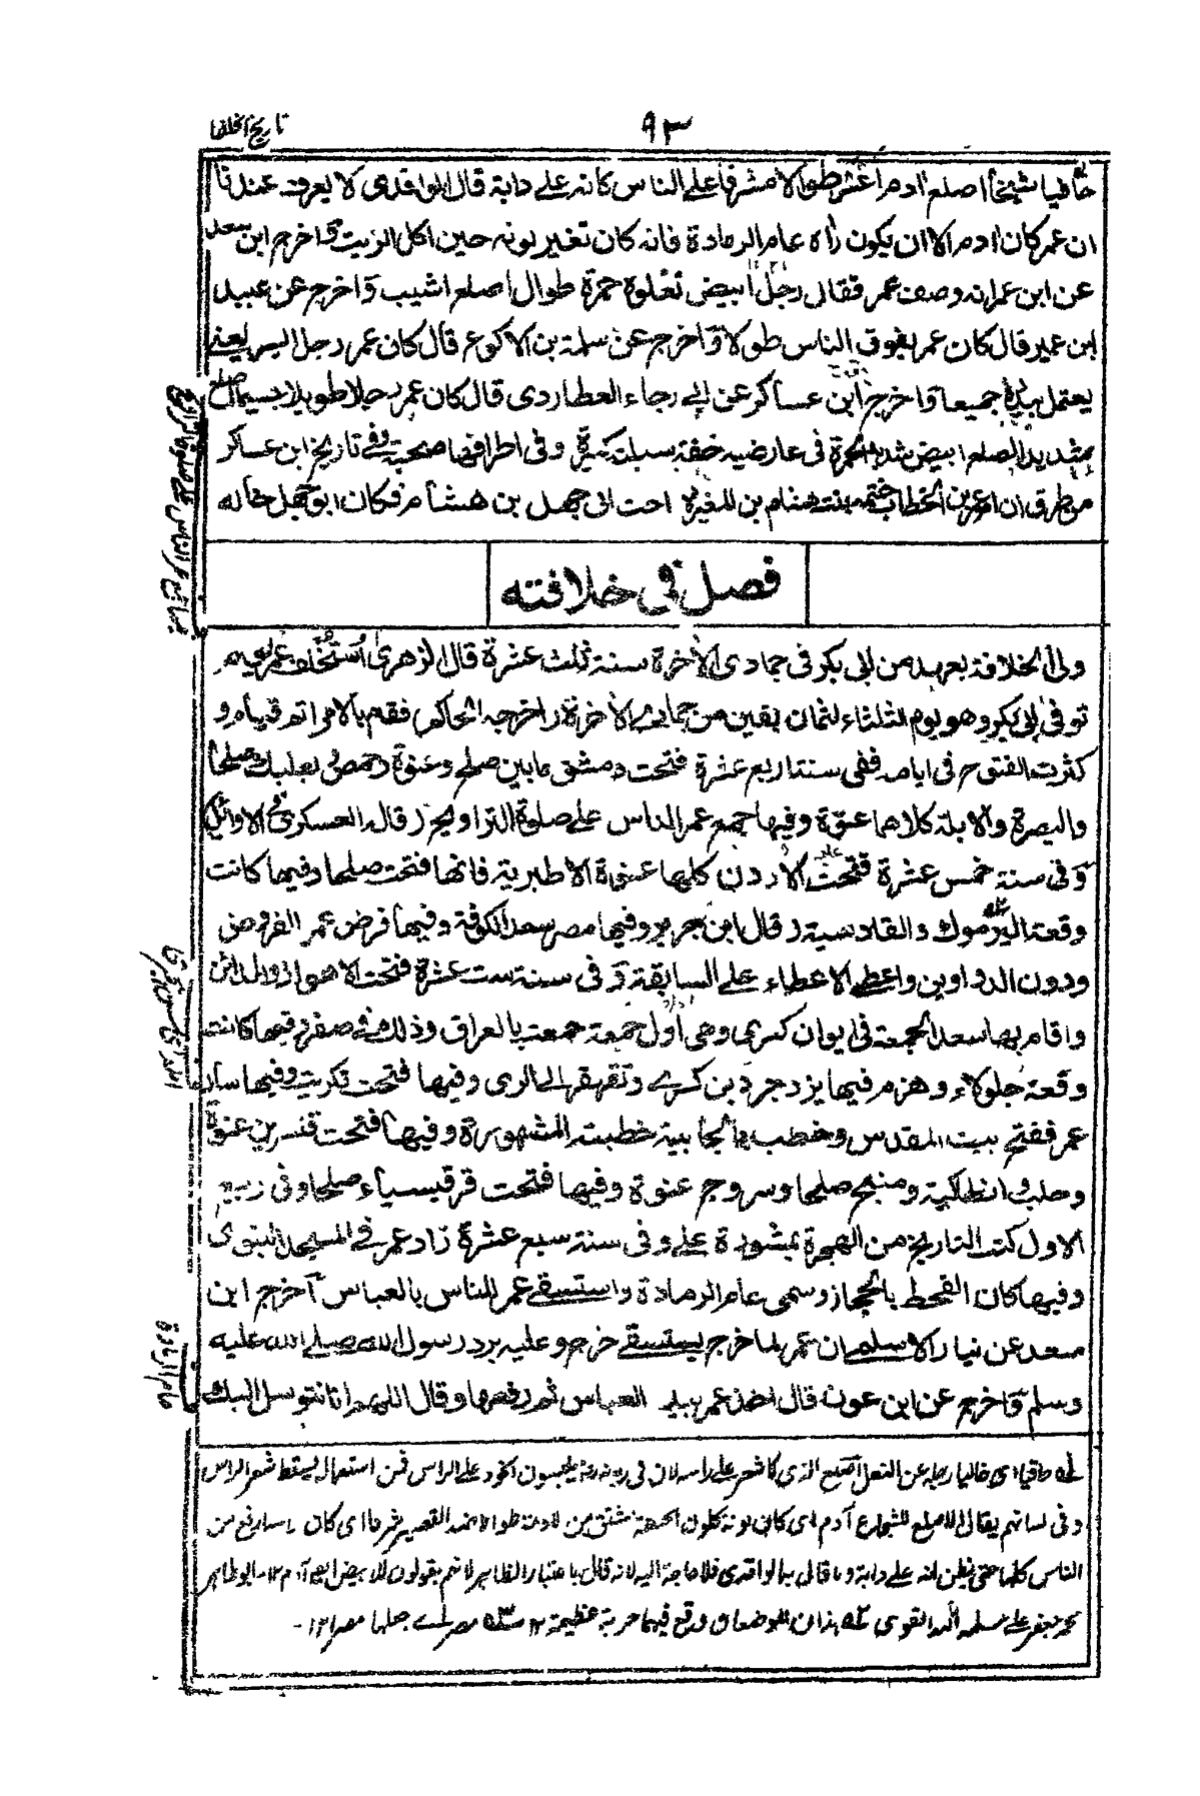 ٩٣
تاريخ الخلفا
حافيا شيخا اصلع ادم اعسر طوالا مشرفا على الناس كانه على دابة قال الواقدى لا يعرف عندنا
ان عمر كان ادم الا ان يكون راه عام الرمادة فانه كان تغير لونه حين اكل الزيت واخرج ابن سعد
عن ابن عمر انه وصف عمر فقال رجل ابيض تعلوه حمرة طوال اصلع اشيب واخرج عن عبيد
ابن عمير قال كان عمر يفوق الناس طولا واخرج عن سلمة بن الاكوع قال كان عمر رجل ايسر يعنے
يعتمل بيديه جميعا واخرج ابن عساكر عن ابى رجاء العطاردى قال كان عمر رجلا طويلا جسيما اصلع
شديد الصلع ابيض شديد الحمرة فى عارضيه خفة سبلته كبيرة وفى اطرافها صهبة وفى تاريخ ابن عساكر
من طرق ان ام عمر بن الخطاب حنتمه بنت هشام بن المغيرة اخت ابى جهل بن هشام فكان ابو جهل خاله
فصل فى خلافته
ولى الخلافة بعهد من ابى بكر فى جمادى الاخرة سنة ثلث عشرة قال الزهرى استخلف عمر يوم
توفى ابى بكر وهو يوم الثلثاء لثمان بقين من جمادى الاخرة اخرجه الحاكم فقام بالامر اتم قيام و
كثرت الفتوح فى ايامه ففى سنة اربع عشرة فتحت دمشق ما بين صلح وعنوة وحمص وبعلبك صلحا
والبصرة والابلة كلاهما عنوة وفيها جمع عمر الناس على صلوة التراويح قاله العسكرى فى الاوائل
وفى سنة خمس عشرة فتحت الاردن كلها عنوة الا طبرية فانها فتحت صلحا وفيها كانت
وقعة اليرموك والقادسية قال ابن جرير وفيها مصر سعد الكوفة وفيها فرض عمر الفروض
ودون الدواوين واعطى الاعطاء على السابقة وفى سنة ست عشرة فتحت الاهواز والمدائن
واقام بها سعد الجمعة فى ايوان كسرى وهى اول جمعة جمعت بالعراق وذلك فى صفر وفيها كانت
وقعة جلولاء وهزم فيها يزدجرد بن كسرے وتقهقر الى الرى وفيها فتحت تكريت وفيها سار
عمر ففتح بيت المقدس وخطب بالجابية خطبته المشهورة وفيها فتحت قنسرين عنوة
وحلب وانطاكية ومنبج صلحا وسروج عنوة وفيها فتحت قرقيسياء صلحا وفى ربيع
الاول كتب التاريخ من الهجرة بمشورة على وفى سنة سبع عشرة زاد عمر فى المسجد النبوى
وفيها كان القحط بالحجاز وسمى عام الرمادة واستسقى عمر للناس بالعباس اخرج ابن
سعد عن نيار الاسلمى ان عمر لما خرج يستسقى خرج وعليه برد رسول الله صلى الله عليه
وسلم واخرج عن ابن عون قال اخذ عمر بيد العباس ثم رفعها وقال اللهم انا نتوسل اليك
حافيا اى خاليا رجله عن النعل اصلع الذى لا شعر على راسه يلبسون الخود على الراس فمن استعماله يسقط شعر الراس
آدم اى كان لونه كلون الحنطة مشتق من الادمة طوالا ضد القصير مشرفا اى كان راسه ارفع من
الناس كلها حتى يظن انه على دابة وما قال الواقدى فلا حاجة اليه لانه قال باعتبار الظاهر لانهم يقولون للابيض ايضا آدم ١٢ ابو طاهر
محمد جعفر على سلمه الله القوى هذان الموضعان وقع فيهما حربة عظيمة ١٢ مصر اے جعلها مصرا ١٢
بها جمع عمر الناس على صلوة التراويح
عام الرمادة